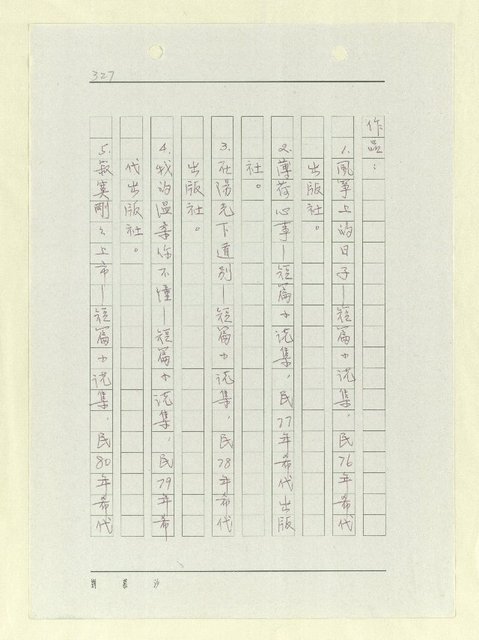 327
作品：
1.風箏上的日子—短篇小說集，民76年希代
出版社。
2.薄荷心事—短篇小說集，民77年希代出版
社。
3.在陽光下道別—短篇小說集，民78年希代
出版社。
4.我的溫柔你不懂—短篇小說集，民79年希
代出版社。
5.寂寞剛剛上市—短篇小說集，民80年希代